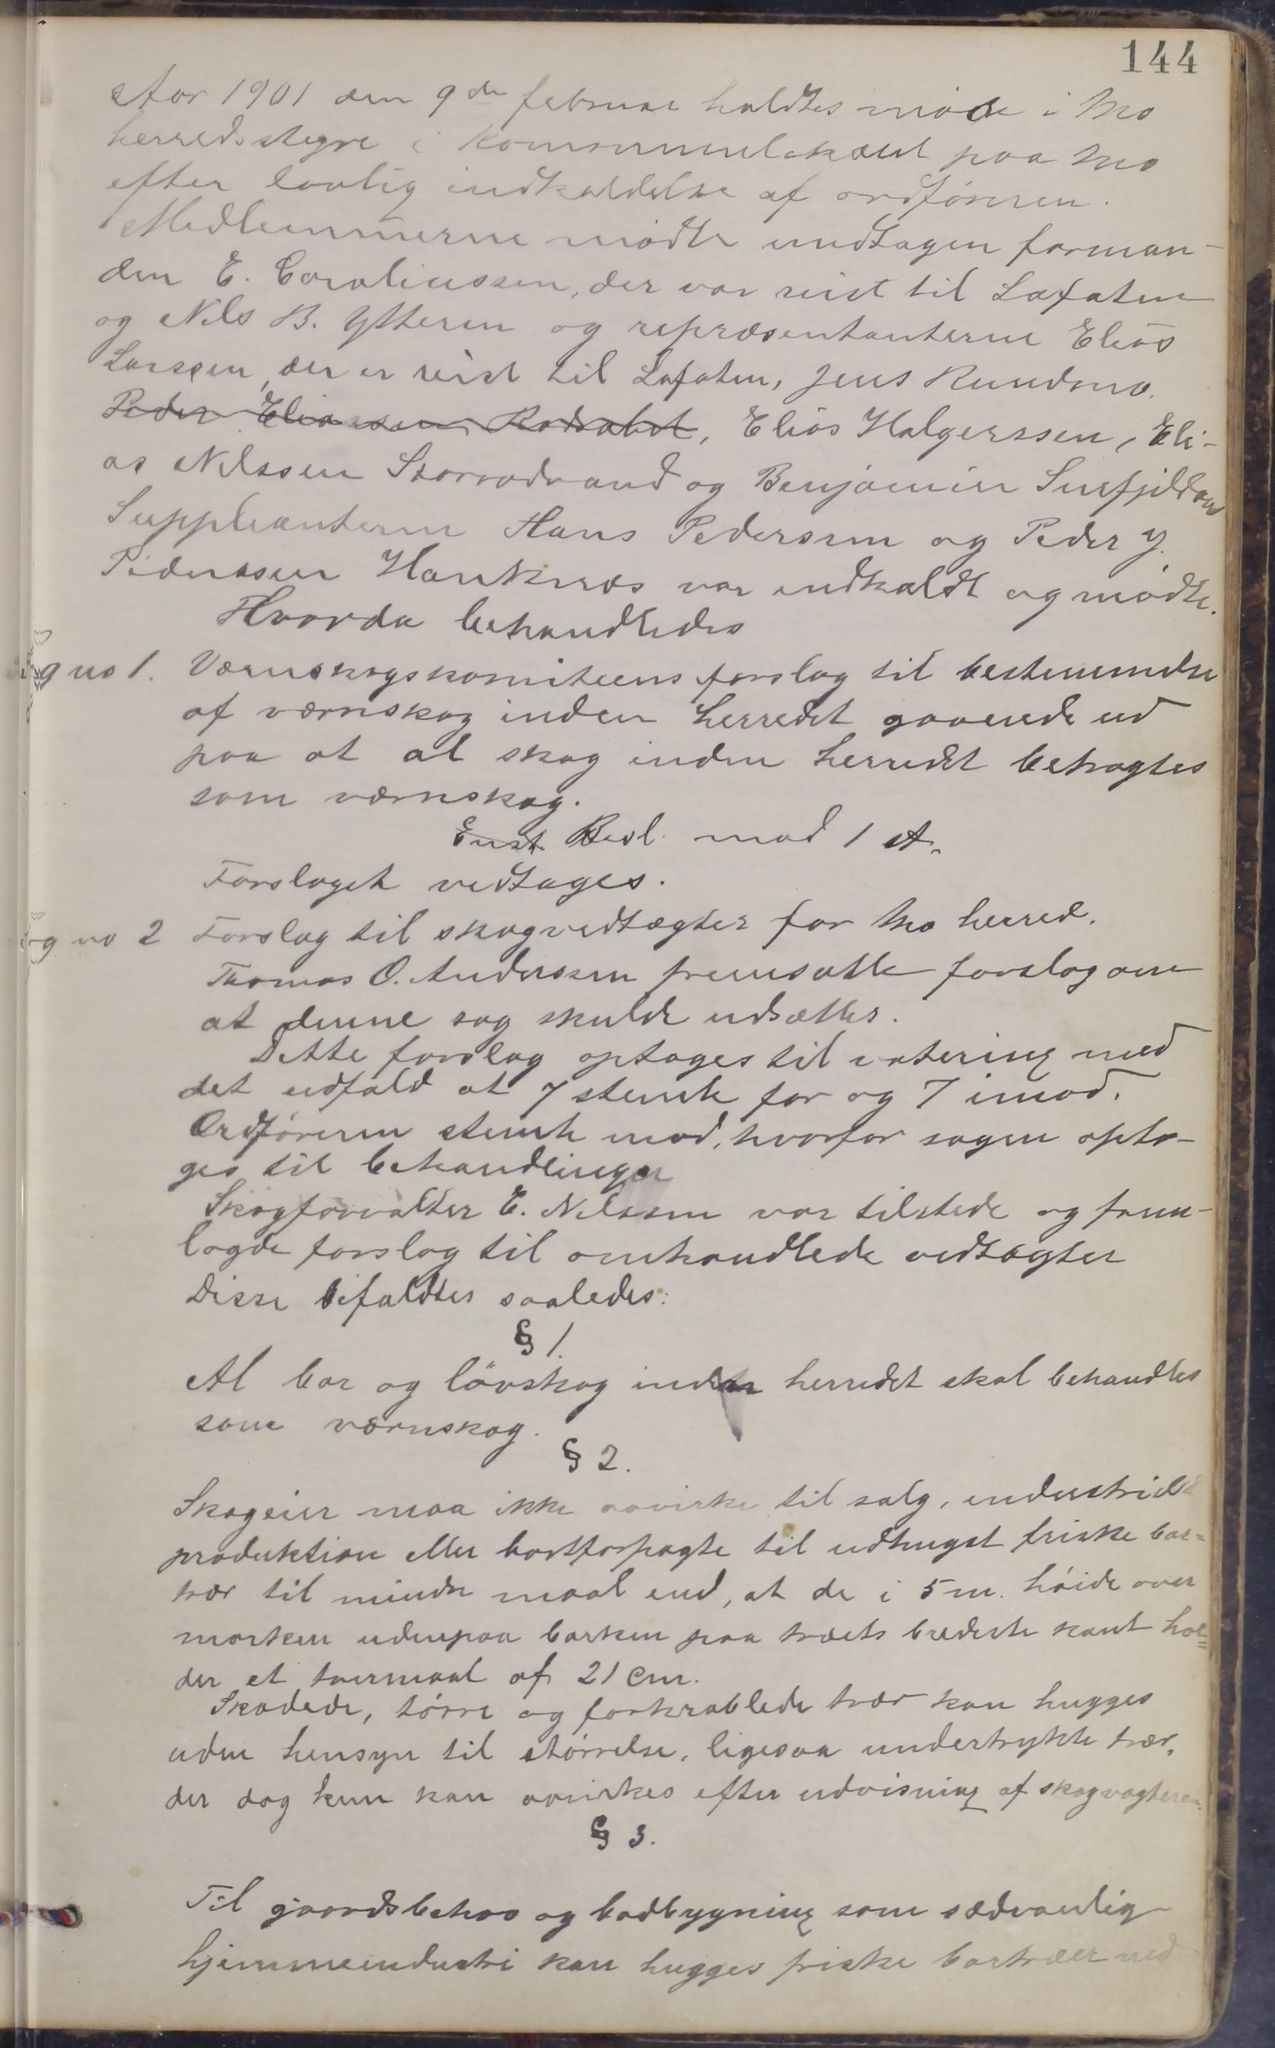 144
Aar 1901 den 9de februar holdtes möde i Mo
herredsstyre i kommunelokalet paa Mo
efter lovlig indkaldelse af ordföreren.
Medlemmerne mödte undtagen forman-
den E. Coroliussen, der var reist til Lofoten
og Nils B. Ytteren og repræsentanterne Elias
Larssen, der er reist til Lofoten, Jens
Peder Eliassen, Elias Holgerssen, Eli-
as Nilssen Storvodvand og Benjamin
Suppleanterne Hans Pederssen og Peder J.
Pederssen Hauknæs var indkaldt og mödte.
Hvorda behandledes
g no 1. Værnskogskomiteens forslag til bestemmelse
af værnskog inden herredet gaaende ud
paa at al skog inden herredet betragtes
som værnskog.
Enst. Besl. mod 1 st.
Forslaget vedtages.
g no 2 Forslag til skogvedtægter for Mo herred.
Thomas O. Anderssen fremsatte forslag om
at denne sag skulde udsættes.
Dette forslag optages til votering med
det udfald at 7 stemte for og 7 imod.
Ordföreren stemte mod, hvorfor sagen opto-
ges til behandlingen
Skogforvalter E. Nilssen var tilstede og frem-
lagde forslag til omhandlede vedtægter
Disse bifaldtes saaledes:
§ 1.
Al bar og lövskog inden herredet skal behandles
som værnskog.
§ 2.
Skogeier maa ikke avvirke til salg, industriel
produktion eller bortforpagte til udhugst friske bar=
trær til mindre maal end, at de i 5 m. höide over
marken udenpaa barken paa træets bredeste kant hol=
der et tvermaal af 21 cm.
Skadede, törre og forkrablede trær kan hugges
uden hensyn til störrelse, ligesaa undertrykte trær,
der dog kun kan avvirkes efter udvisning af skogvogteren.
§ 3.
Til gaardsbehov og baadbygning som sædvanlig
hjemmeindustri kan hugges friske bartræer ned